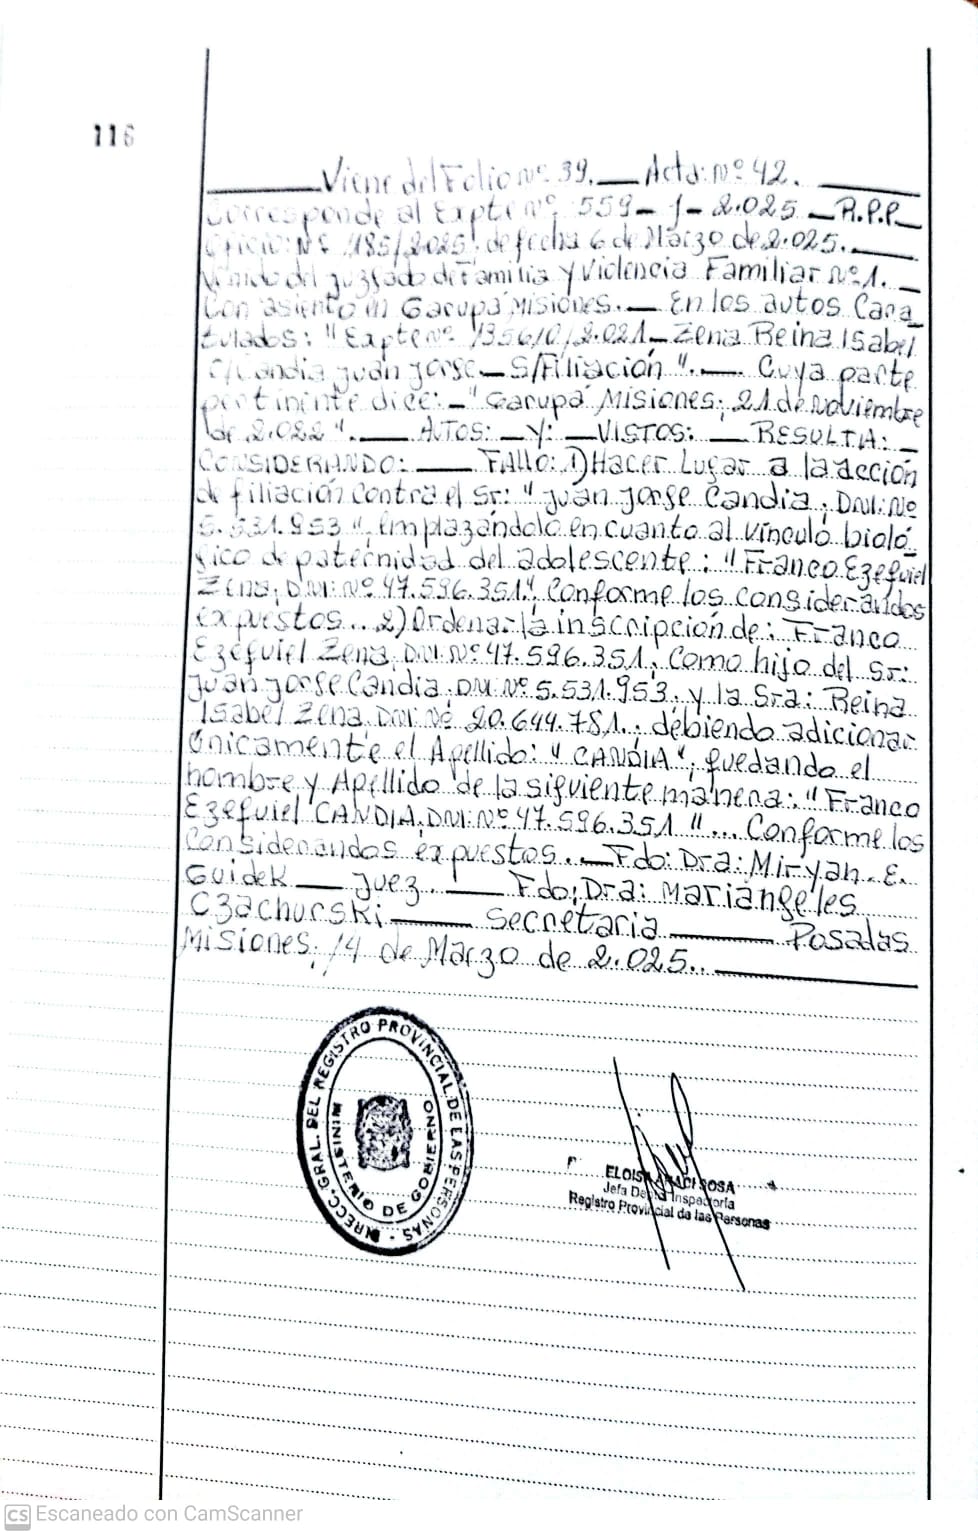 116
Viene del Folio Nº 39. Acta: Nº 42.
Corresponde al Expte Nº 559-J-2.025 R.P.P
Oficio: Nº 185/2025. de fecha 6 de Marzo de 2.025.
Venido del Juzgado de Familia y Violencia Familiar Nº 1.
Con asiento en Garupá Misiones. En los autos Cara
tulados: "Expte Nº 1356/0/2.021 Zena Reina Isabel
C/Candia Juan Jorge S/Filiación". Cuya parte
pertinente dice: "Garupá Misiones, 21 de Noviembre
de 2.022". AUTOS: Y: VISTOS: RESULTA:
CONSIDERANDO: FALLO: 1) Hacer Lugar a la acción
de filiación contra el Sr: "Juan Jorge Candia, DNI: Nº
5.531.953", emplazándolo en cuanto al vínculo bioló
gico de paternidad del adolescente: "Franco Ezequiel
Zena, DNI: Nº 47.596.351" Conforme los considerandos
expuestos... 2) Ordenar la inscripción de: Franco
Ezequiel Zena, DNI: Nº 47.596.351, Como hijo del Sr:
Juan Jorge Candia. DNI: Nº 5.531.953. y la Sra: Reina
Isabel Zena DNI Nº 20.644.781., debiendo adicionar
únicamente el Apellido: "CANDIA", quedando el
nombre y Apellido de la siguiente manera: "Franco
Ezequiel CANDIA. DNI: Nº 47.596.351"... Conforme los
Considerandos expuestos. Fdo: Dra: Miryan. E.
Guidek Juez. Fdo: Dra: Mariángeles
Czachurski Secretaria Posadas
Misiones, 14 de Marzo de 2.025.
DIRECC. GRAL. DEL REGISTRO PROVINCIAL DE LAS PERSONAS -
MINISTERIO DE GOBIERNO
ELOISA SOSA
Jefa Inspectoría
Registro Provincial de las Personas
CS Escaneado con CamScanner